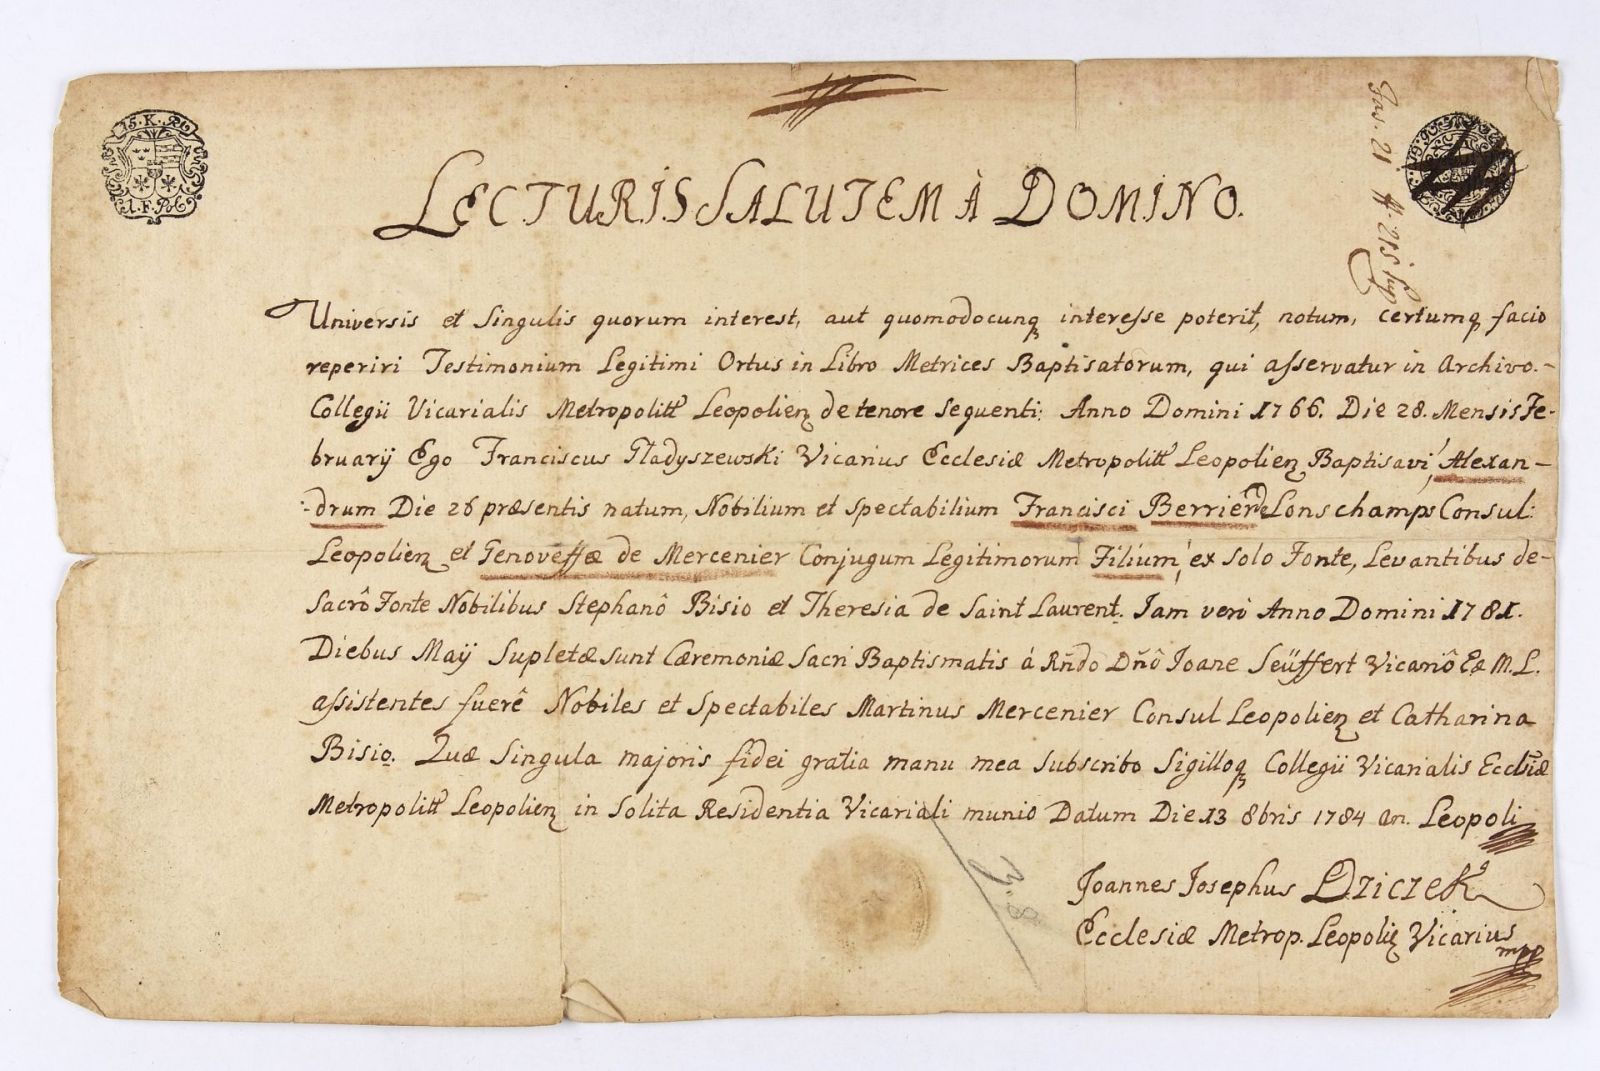 15. K. R.
A. F. Pol.
Fas. 21 #. 215
LECTURIS SALUTEM À DOMINO.
Universis et Singulis quorum interest, aut quomodocunq interesse poterit, notum, certumq facio
reperiri Testimonium Legitimi Ortus in Libro Metrices Baptisatorum, qui asservatur in Archivo.-
Collegii Vicarialis Metropolitt Leopolien de tenore sequenti: Anno Domini 1766. Die 28. Mensis Fe-
bruarij Ego Franciscus Gładyszewski Vicarius Ecclesiæ Metropolitt Leopolien Baptisavi, Alexan-
-drum Die 26 præsentis natum, Nobilium et Spectabilium Francisci Berrier de Lonschamps Consul:
Leopolien et Genoveffæ de Mercenier Conjugum Legitimorum Filium, ex Solo Fonte, Levantibus de-
Sacrô Fonte Nobilibus Stephanô Bisio et Theresia de Saint Laurent. Jam verò Anno Domini 1781.
Diebus Maÿ Supletæ sunt Cæremoniæ Sacri Baptismatis á Rñdo Dñô Joane Seüffert Vicariô E.æ M. L.
assistentes fuerê Nobiles et Spectabiles Martinus Mercenier Consul Leopolien et Catharina
Bisio. Quæ Singula majoris fidei gratia manu mea Subscribo Sigilloq Collegii Vicarialis Eccliæ
Metropolitt Leopolien in Solita Residentia Vicariali munio Datum Die 13 8bris 1784 An. Leopoli
Joannes Josephus Dziczek
Ecclesiæ Metrop. Leopolien Vicarius
mpp